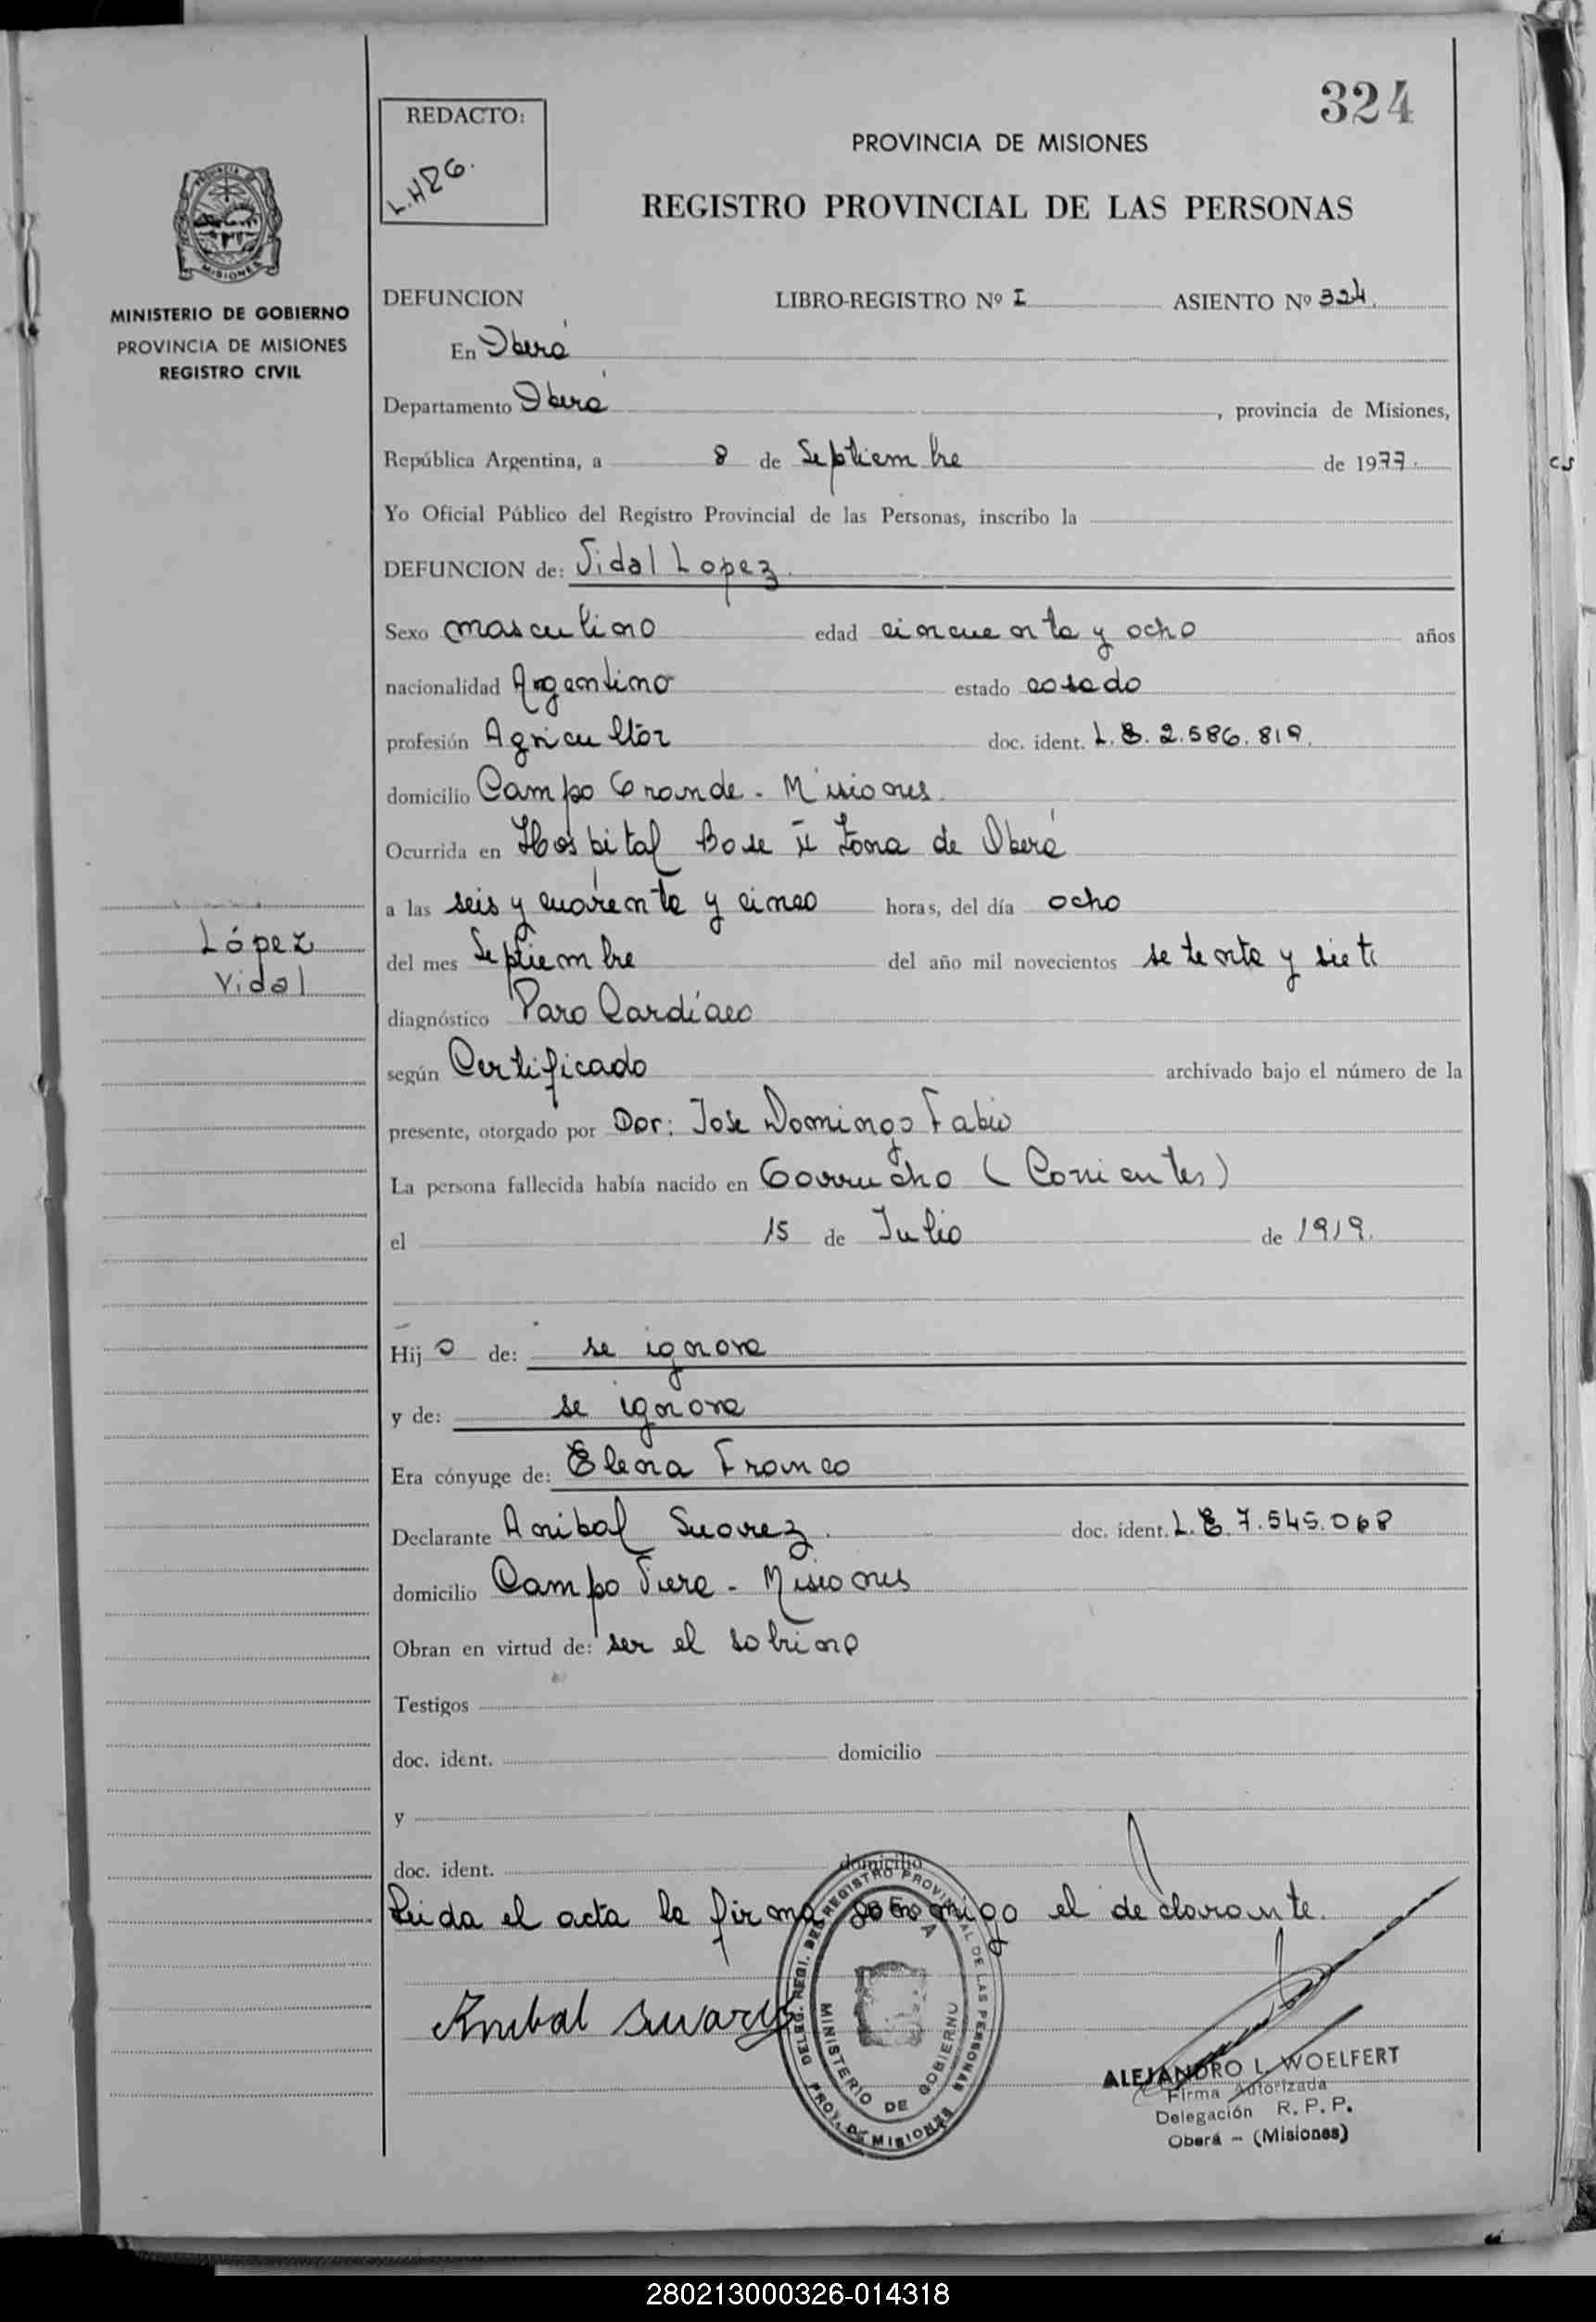 324
REDACTO:
L.H.R.G.
PROVINCIA DE MISIONES
REGISTRO PROVINCIAL DE LAS PERSONAS
MISIONES
MINISTERIO DE GOBIERNO
PROVINCIA DE MISIONES
REGISTRO CIVIL
DEFUNCION LIBRO-REGISTRO Nº I ASIENTO Nº 324.
En Oberá
Departamento Oberá, provincia de Misiones,
República Argentina, a 8 de Septiembre de 1977.
Yo Oficial Público del Registro Provincial de las Personas, inscribo la
DEFUNCION de: Vidal Lopez.
Sexo masculino edad cincuenta y ocho años
nacionalidad Argentino estado casado
profesión Agricultor doc. ident. L.E. 2.586.819.
domicilio Campo Grande - Misiones.
Ocurrida en Hospital Base II Zona de Oberá
a las seis y cuarenta y cinco horas, del día ocho
López
Vidal
del mes Septiembre del año mil novecientos setenta y siete
diagnóstico Paro Cardíaco
según Certificado archivado bajo el número de la
presente, otorgado por Dor: Jose Domingo Fabio
La persona fallecida había nacido en Garruchо (Corrientes)
el 15 de Julio de 1919.
Hijo de: se ignora
y de: se ignora
Era cónyuge de: Elena Franco
Declarante Anibal Suarez. doc. ident. L.E. 7.545.068
domicilio Campo Viera - Misiones
Obran en virtud de: ser el sobrino
Testigos
doc. ident. domicilio
y
doc. ident. domicilio
Leida el acta la firma conmigo el declarante.
Anibal Suarez
DELEG. REGI. DEL REGISTRO PROVINCIAL DE LAS PERSONAS
OBERA
MINISTERIO DE GOBIERNO
PROV. DE MISIONES
ALEJANDRO L. WOELFERT
Firma Autorizada
Delegación R. P. P.
Oberá - (Misiones)
280213000326-014318